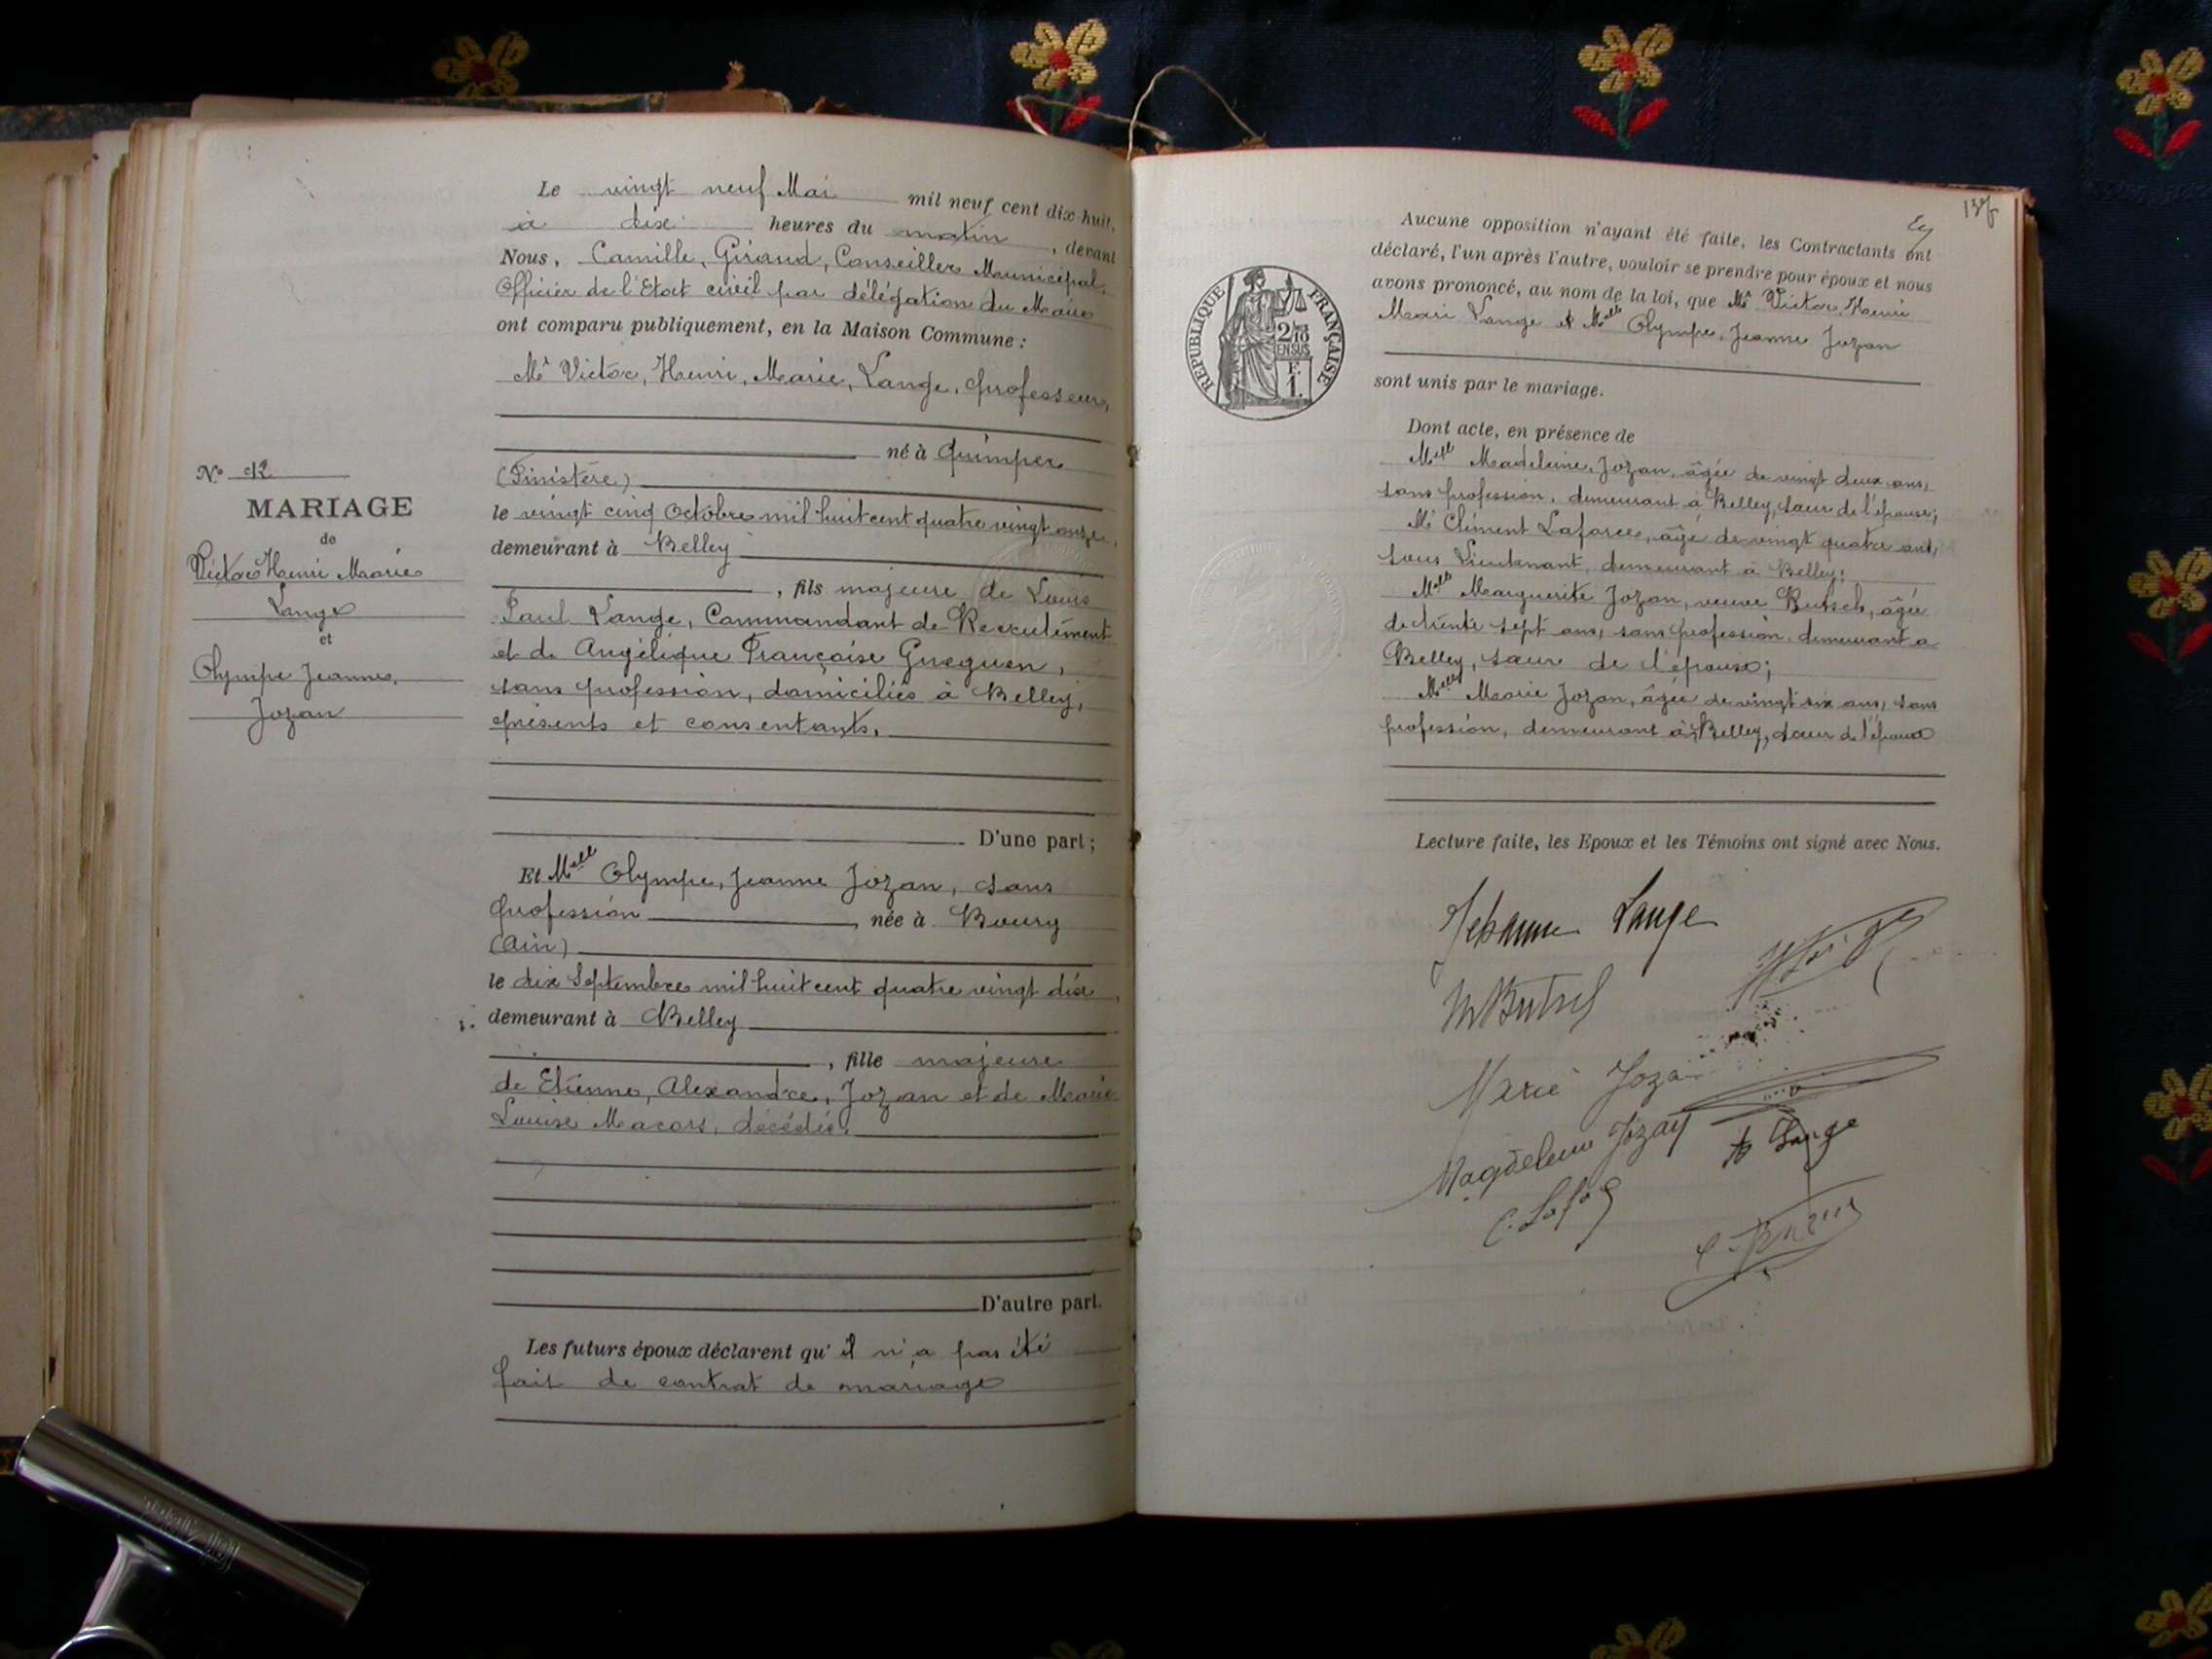 Le vingt neuf Mai mil neuf cent dix-huit,
à dix heures du matin, devant
Nous, Camille, Giraud, Conseiller Municipal,
Officier de l'Etat civil par délégation du Maire
ont comparu publiquement, en la Maison Commune :
Mr Victor, Henri, Marie, Lange, professeur,
né à Quimper
(Finistère)
le vingt cinq Octobre mil huit cent quatre vingt onze,
demeurant à Belley
, fils majeure de Louis
Paul Lange, Commandant de Recrutement
et de Angélique Françoise Gueguen,
sans profession, domiciliés à Belley,
présents et consentants,
D'une part ;
Et Melle Olympe, Jeanne Jozan, sans
profession, née à Bourg
(Ain)
le dix Septembre mil huit cent quatre vingt dix,
demeurant à Belley
, fille majeure
de Etienne, Alexandre, Jozan et de Marie
Louise Macors, décédés.
D'autre part.
Les futurs époux déclarent qu'il n'a pas été
fait de contrat de mariage
No 12
MARIAGE
de
Victor Henri Marie
Lange
et
Olympe Jeanne,
Jozan
Aucune opposition n'ayant été faite, les Contractants ont
déclaré, l'un après l'autre, vouloir se prendre pour époux et nous
avons prononcé, au nom de la loi, que Mr Victor, Henri
Marie Lange et Melle Olympe, Jeanne Jozan
sont unis par le mariage.
Dont acte, en présence de
Melle Madeleine, Jozan, âgée de vingt deux ans,
sans profession, demeurant à Belley, sœur de l'épouse;
Mr Clément Laforce, âgé de vingt quatre ans,
sous Lieutenant, demeurant à Belley;
Marguerite Jozan, veuve Butsch, âgée
de trente sept ans, sans profession, demeurant à
Belley, sœur de l'épouse;
Melle Marie Jozan, âgée de vingt six ans, sans
profession, demeurant à Belley, sœur de l'épouse
Lecture faite, les Epoux et les Témoins ont signé avec Nous.
Jehanne Lange
Marie Joza
Magdeleine Jozan
Lange
REPUBLIQUE FRANÇAISE
2/10
EN SUS
F.
1.